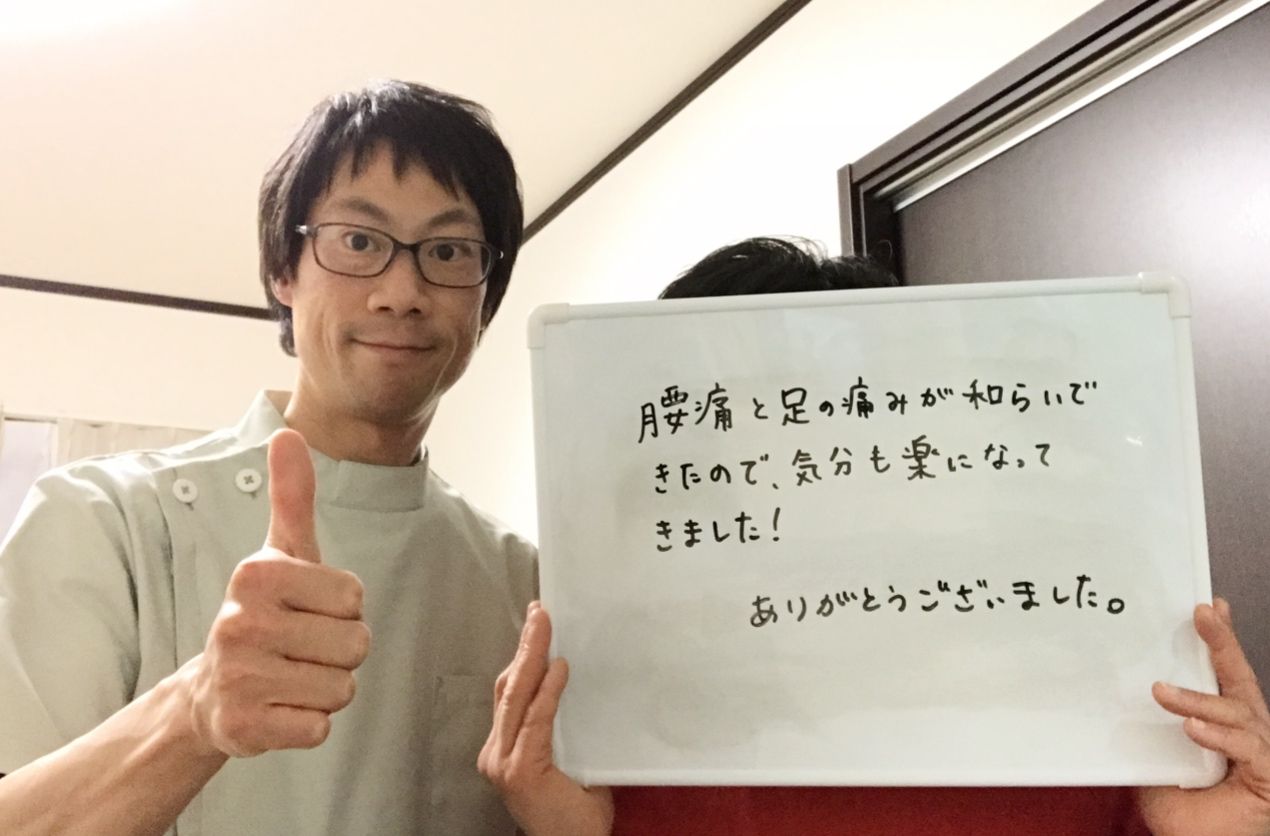 腰痛と足の痛みが和らいで
きたので、気分も楽になって
きました!
ありがとうございました。